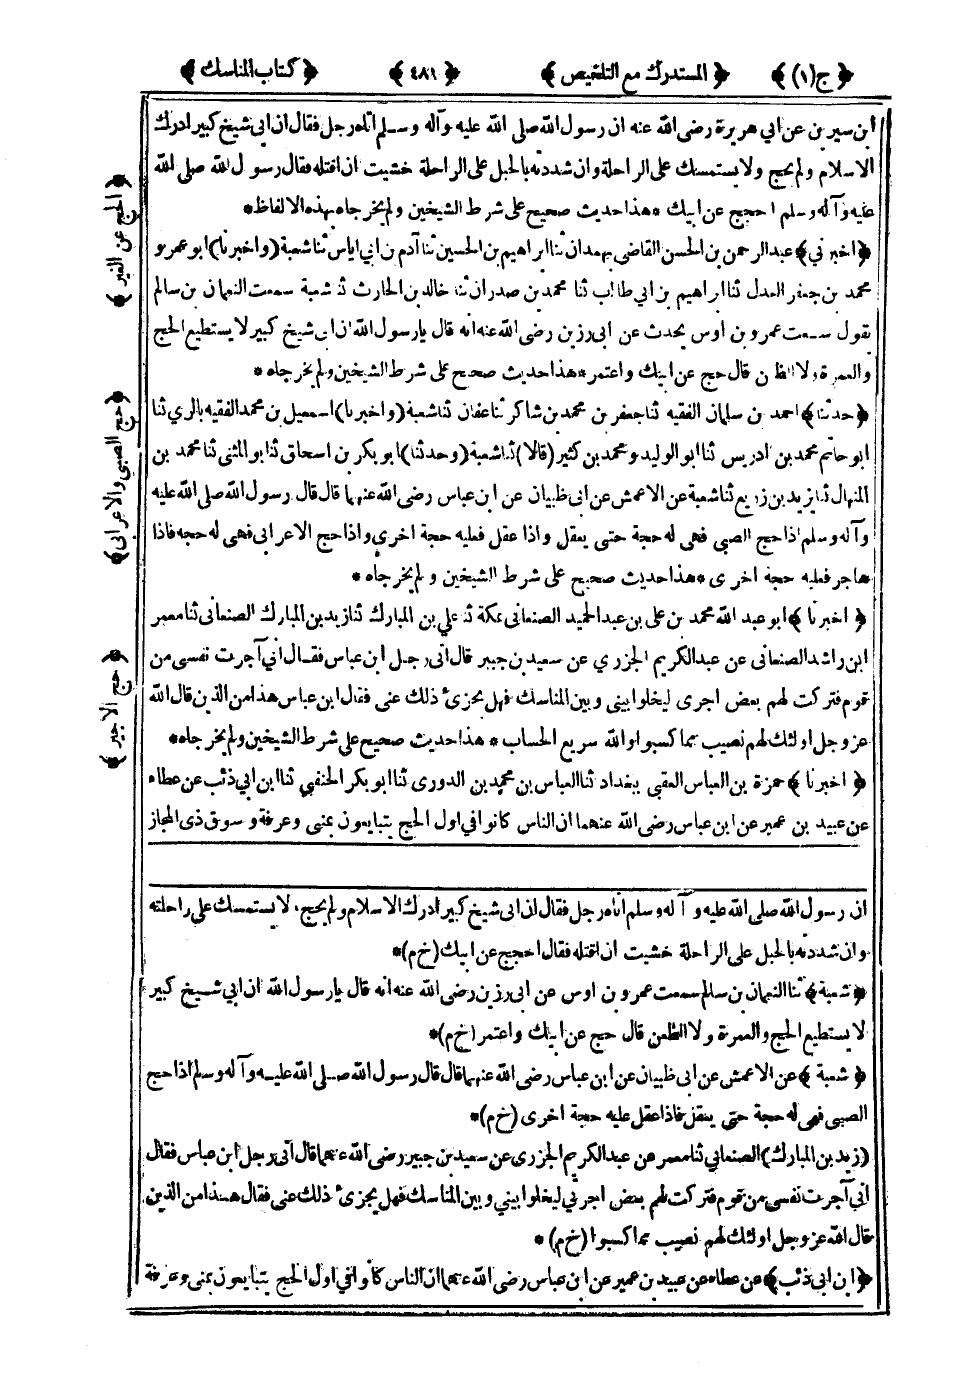 ﴿ج(١)﴾ ﴿المستدرك مع التلخيص﴾ ﴿٤٨١﴾ ﴿كتاب المناسك﴾
ابن سيرين عن ابي هريرة رضى الله عنه ان رسول الله صلى الله عليه وآله وسلم اتاه رجل فقال ان ابى شيخ كبير ادرك
الاسلام ولم يحج ولا يستمسك على الراحلة وان شددته بالحبل على الراحلة خشيت ان اقتله فقال رسول الله صلى الله
عليه وآله وسلم احجج عن ابيك * هذا حديث صحيح على شرط الشيخين ولم يخرجاه بهذه الالفاظ *
﴿اخبرني﴾ عبد الرحمن بن الحسن القاضى بهمدان ثنا ابراهيم بن الحسين ثنا آدم بن ابي اياس ثنا شعبة (واخبرنا) ابو عمرو
محمد بن جعفر العدل ثنا ابراهيم بن ابي طالب ثنا محمد بن صدران ثنا خالد بن الحارث ثنا شعبة سمعت النعمان بن سالم
يقول سمعت عمرو بن اوس يحدث عن ابى رزين رضى الله عنه انه قال يا رسول الله ان ابى شيخ كبير لا يستطيع الحج
والعمرة ولا الظعن قال حج عن ابيك واعتمر * هذا حديث صحيح على شرط الشيخين ولم يخرجاه *
﴿حدثنا﴾ احمد بن سلمان الفقيه ثنا جعفر بن محمد بن شاكر ثنا عفان ثنا شعبة (واخبرنا) اسمعيل بن محمد الفقيه بالري ثنا
ابو حاتم محمد بن ادريس ثنا ابو الوليد ومحمد بن كثير (قالا) ثنا شعبة (وحدثنا) ابو بكر بن اسحاق ثنا ابو المثنى ثنا محمد بن
المنهال ثنا يزيد بن زريع ثنا شعبة عن الاعمش عن ابى ظبيان عن ابن عباس رضى الله عنهما قال قال رسول الله صلى الله عليه
وآله وسلم اذا حج الصبي فهى له حجة حتى يعقل واذا عقل فعليه حجة اخرى واذا حج الاعرابى فهى له حجه فاذا
هاجر فعليه حجة اخرى * هذا حديث صحيح على شرط الشيخين ولم يخرجاه *
﴿اخبرنا﴾ ابو عبد الله محمد بن على بن عبد الحميد الصنعانى بمكة ثنا علي بن المبارك ثنا زيد بن المبارك الصنعانى ثنا معمر
ابن راشد الصنعانى عن عبد الكريم الجزري عن سعيد بن جبير قال اتى رجل ابن عباس فقال اني آجرت نفسى من
قوم فتركت لهم بعض اجرى ليخلوا بينى وبين المناسك فهل يجزئ ذلك عنى فقال ابن عباس هذا من الذين قال الله
عز وجل اولئك لهم نصيب مما كسبوا والله سريع الحساب * هذا حديث صحيح على شرط الشيخين ولم يخرجاه *
﴿اخبرنا﴾ حمزة بن العباس العقبى ببغداد ثنا العباس بن محمد بن الدورى ثنا ابو بكر الحنفي ثنا ابن ابي ذئب عن عطاء
عن عبيد بن عمير عن ابن عباس رضى الله عنهما ان الناس كانوا في اول الحج يتبايعون بمنى وعرفة وسوق ذى المجاز
﴿الحج عن الغير﴾
﴿حج الصبى والاعرابى﴾
﴿حج الاجير﴾
ان رسول الله صلى الله عليه وآله وسلم اتاه رجل فقال ان ابى شيخ كبير ادرك الاسلام ولم يحج، لا يستمسك على راحلته
وان شددته بالحبل على الراحلة خشيت ان اقتله فقال احجج عن ابيك (خ م) *
﴿شعبة﴾ ثنا النعمان بن سالم سمعت عمرو بن اوس عن ابى رزين رضى الله عنه انه قال يا رسول الله ان ابي شيخ كبير
لا يستطيع الحج والعمرة ولا الظعن قال حج عن ابيك واعتمر (خ م) *
﴿شعبة﴾ عن الاعمش عن ابى ظبيان عن ابن عباس رضى الله عنهما قال قال رسول الله صلى الله عليه وآله وسلم اذا حج
الصبي فهى له حجة حتى يعقل فاذا عقل عليه حجة اخرى (خ م) *
(زيد بن المبارك) الصنعاني ثنا معمر عن عبد الكريم الجزرى عن سعيد بن جبير رضى الله عنهما قال أتى رجل ابن عباس فقال
اني آجرت نفسى من قوم فتركت لهم بعض اجرتي ليخلوا بيني وبين المناسك فهل يجزئ ذلك عنى فقال هذا من الذين
قال الله عز وجل اولئك لهم نصيب مما كسبوا (خ م) *
﴿ابن ابى ذئب﴾ عن عطاء عن عبيد بن عمير عن ابن عباس رضى الله عنهما ان الناس كانوا في اول الحج يتبايعون بمنى وعرفة